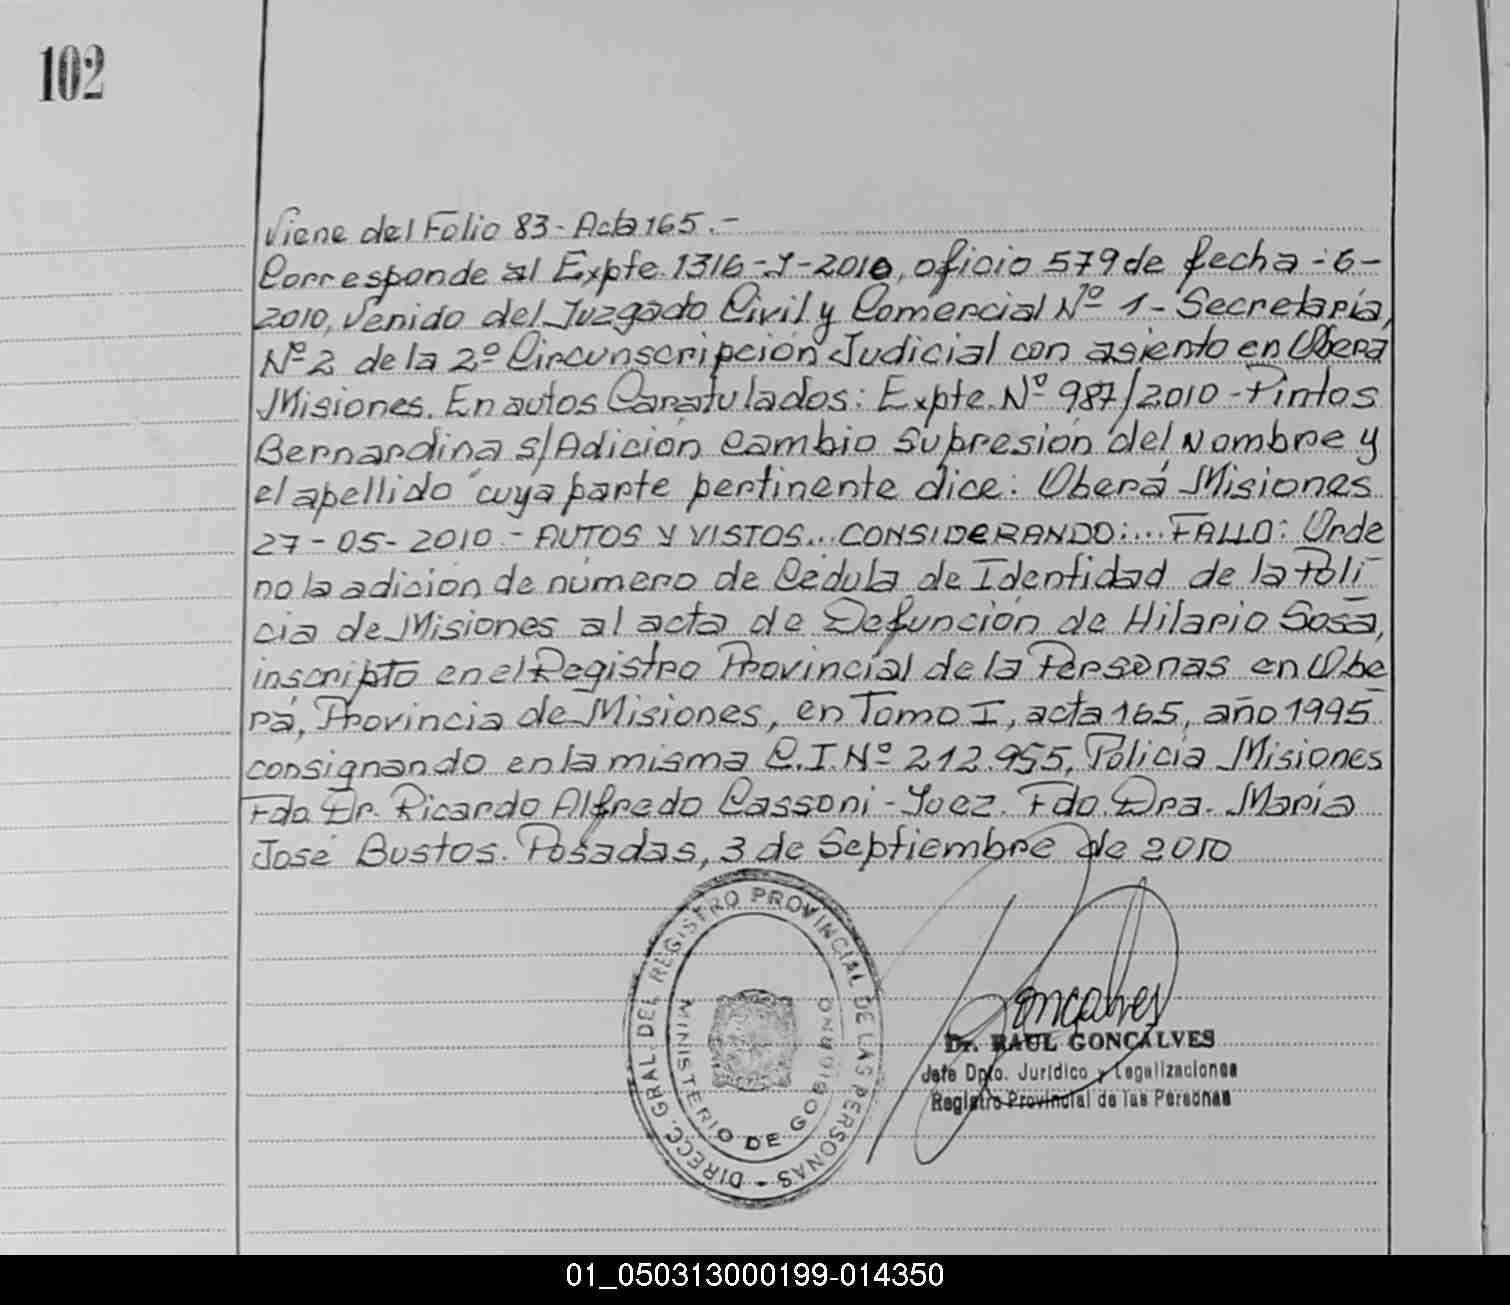 102
Viene del Folio 83 - Acta 165.-
Corresponde al Expte. 1316-J-2010, oficio 579 de fecha -6-
2010, Venido del Juzgado Civil y Comercial Nº 1 - Secretaría,
Nº 2 de la 2º Circunscripción Judicial con asiento en Oberá
Misiones. En autos Caratulados: Expte. Nº 987/2010 - Pintos
Bernardina s/Adición Cambio Supresión del Nombre y
el apellido cuya parte pertinente dice: Oberá Misiones
27-05-2010.- AUTOS Y VISTOS... CONSIDERANDO:... FALLO: Orde
no la adición de número de Cédula de Identidad de la Poli
cia de Misiones al acta de Defunción de Hilario Sosa,
inscripto en el Registro Provincial de la Personas en Obe
rá, Provincia de Misiones, en Tomo I, acta 165, año 1995
consignando en la misma C.I. Nº 212.955, Policía Misiones
Fdo. Dr. Ricardo Alfredo Cassoni - Juez. Fdo. Dra. María
José Bustos. Posadas, 3 de Septiembre de 2010
DIRECC. GRAL. DEL REGISTRO PROVINCIAL DE LAS PERSONAS -
MINISTERIO DE GOBIERNO
Goncalves
Dr. RAUL GONCALVES
Jefe Dpto. Jurídico y Legalizaciones
Registro Provincial de las Personas
01_050313000199-014350